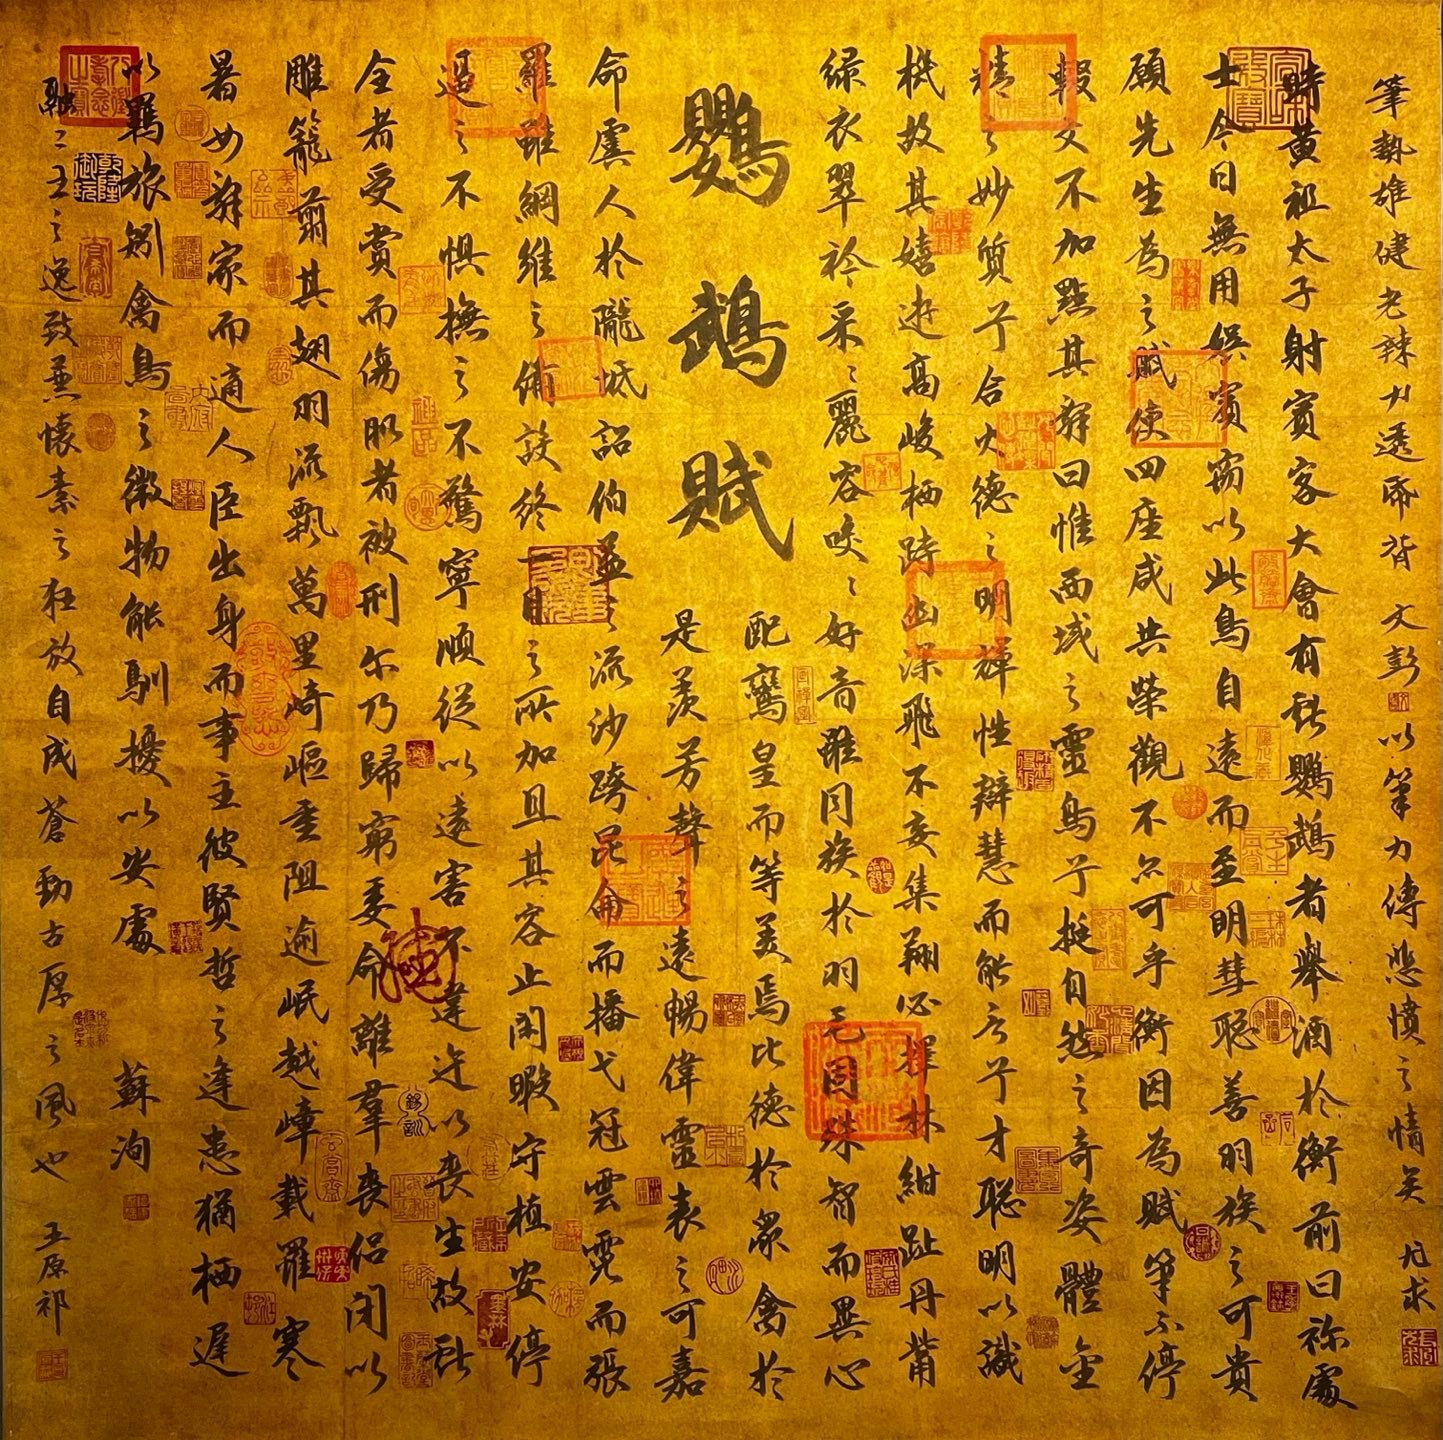 筆執雄健老辣力透紙背 文彭 以筆力傳悲憤之情矣 尤求
時黃祖太子射賓客大會有獻鸚鵡者舉酒於衡前曰祢處
士今日無用娛賓竊以此鳥自遠而至明彗聰善羽族之可貴
願先生為之賦使四座咸共榮觀不亦可乎衡因為賦筆不停
輟文不加點其辭曰惟西域之靈鳥兮挺自然之奇姿體金
精之妙質兮合火德之明輝性辯慧而能言兮才聰明以識
機故其嬉遊高峻栖跱幽深飛不妄集翔必擇林紺趾丹觜
綠衣翠衿采〻麗容咬〻好音雖同族於羽毛固殊智而異心
鸚鵡賦
配鸞皇而等美焉比德於眾禽於
是羨芳聲之遠暢偉靈表之可嘉
命虞人於隴坻詔伯益於流沙跨昆侖而播弋冠雲霓而張
羅雖綱維之備設終一目之所加且其容止閑暇守植安停
逼之不懼撫之不驚寧順從以遠害不違迕以喪生故獻
全者受賞而傷肌者被刑尔乃歸窮委命離羣喪侶閉以
雕籠翦其翅羽流飄萬里崎嶇重阻逾岷越嶂載罹寒
暑女辭家而適人臣出身而事主彼賢哲之逢患猶栖遲
以羈旅矧禽鳥之微物能馴擾以安處 蘇洵
融二王之逸致兼懷素之狂放自成蒼勁古厚之風也 王原祁